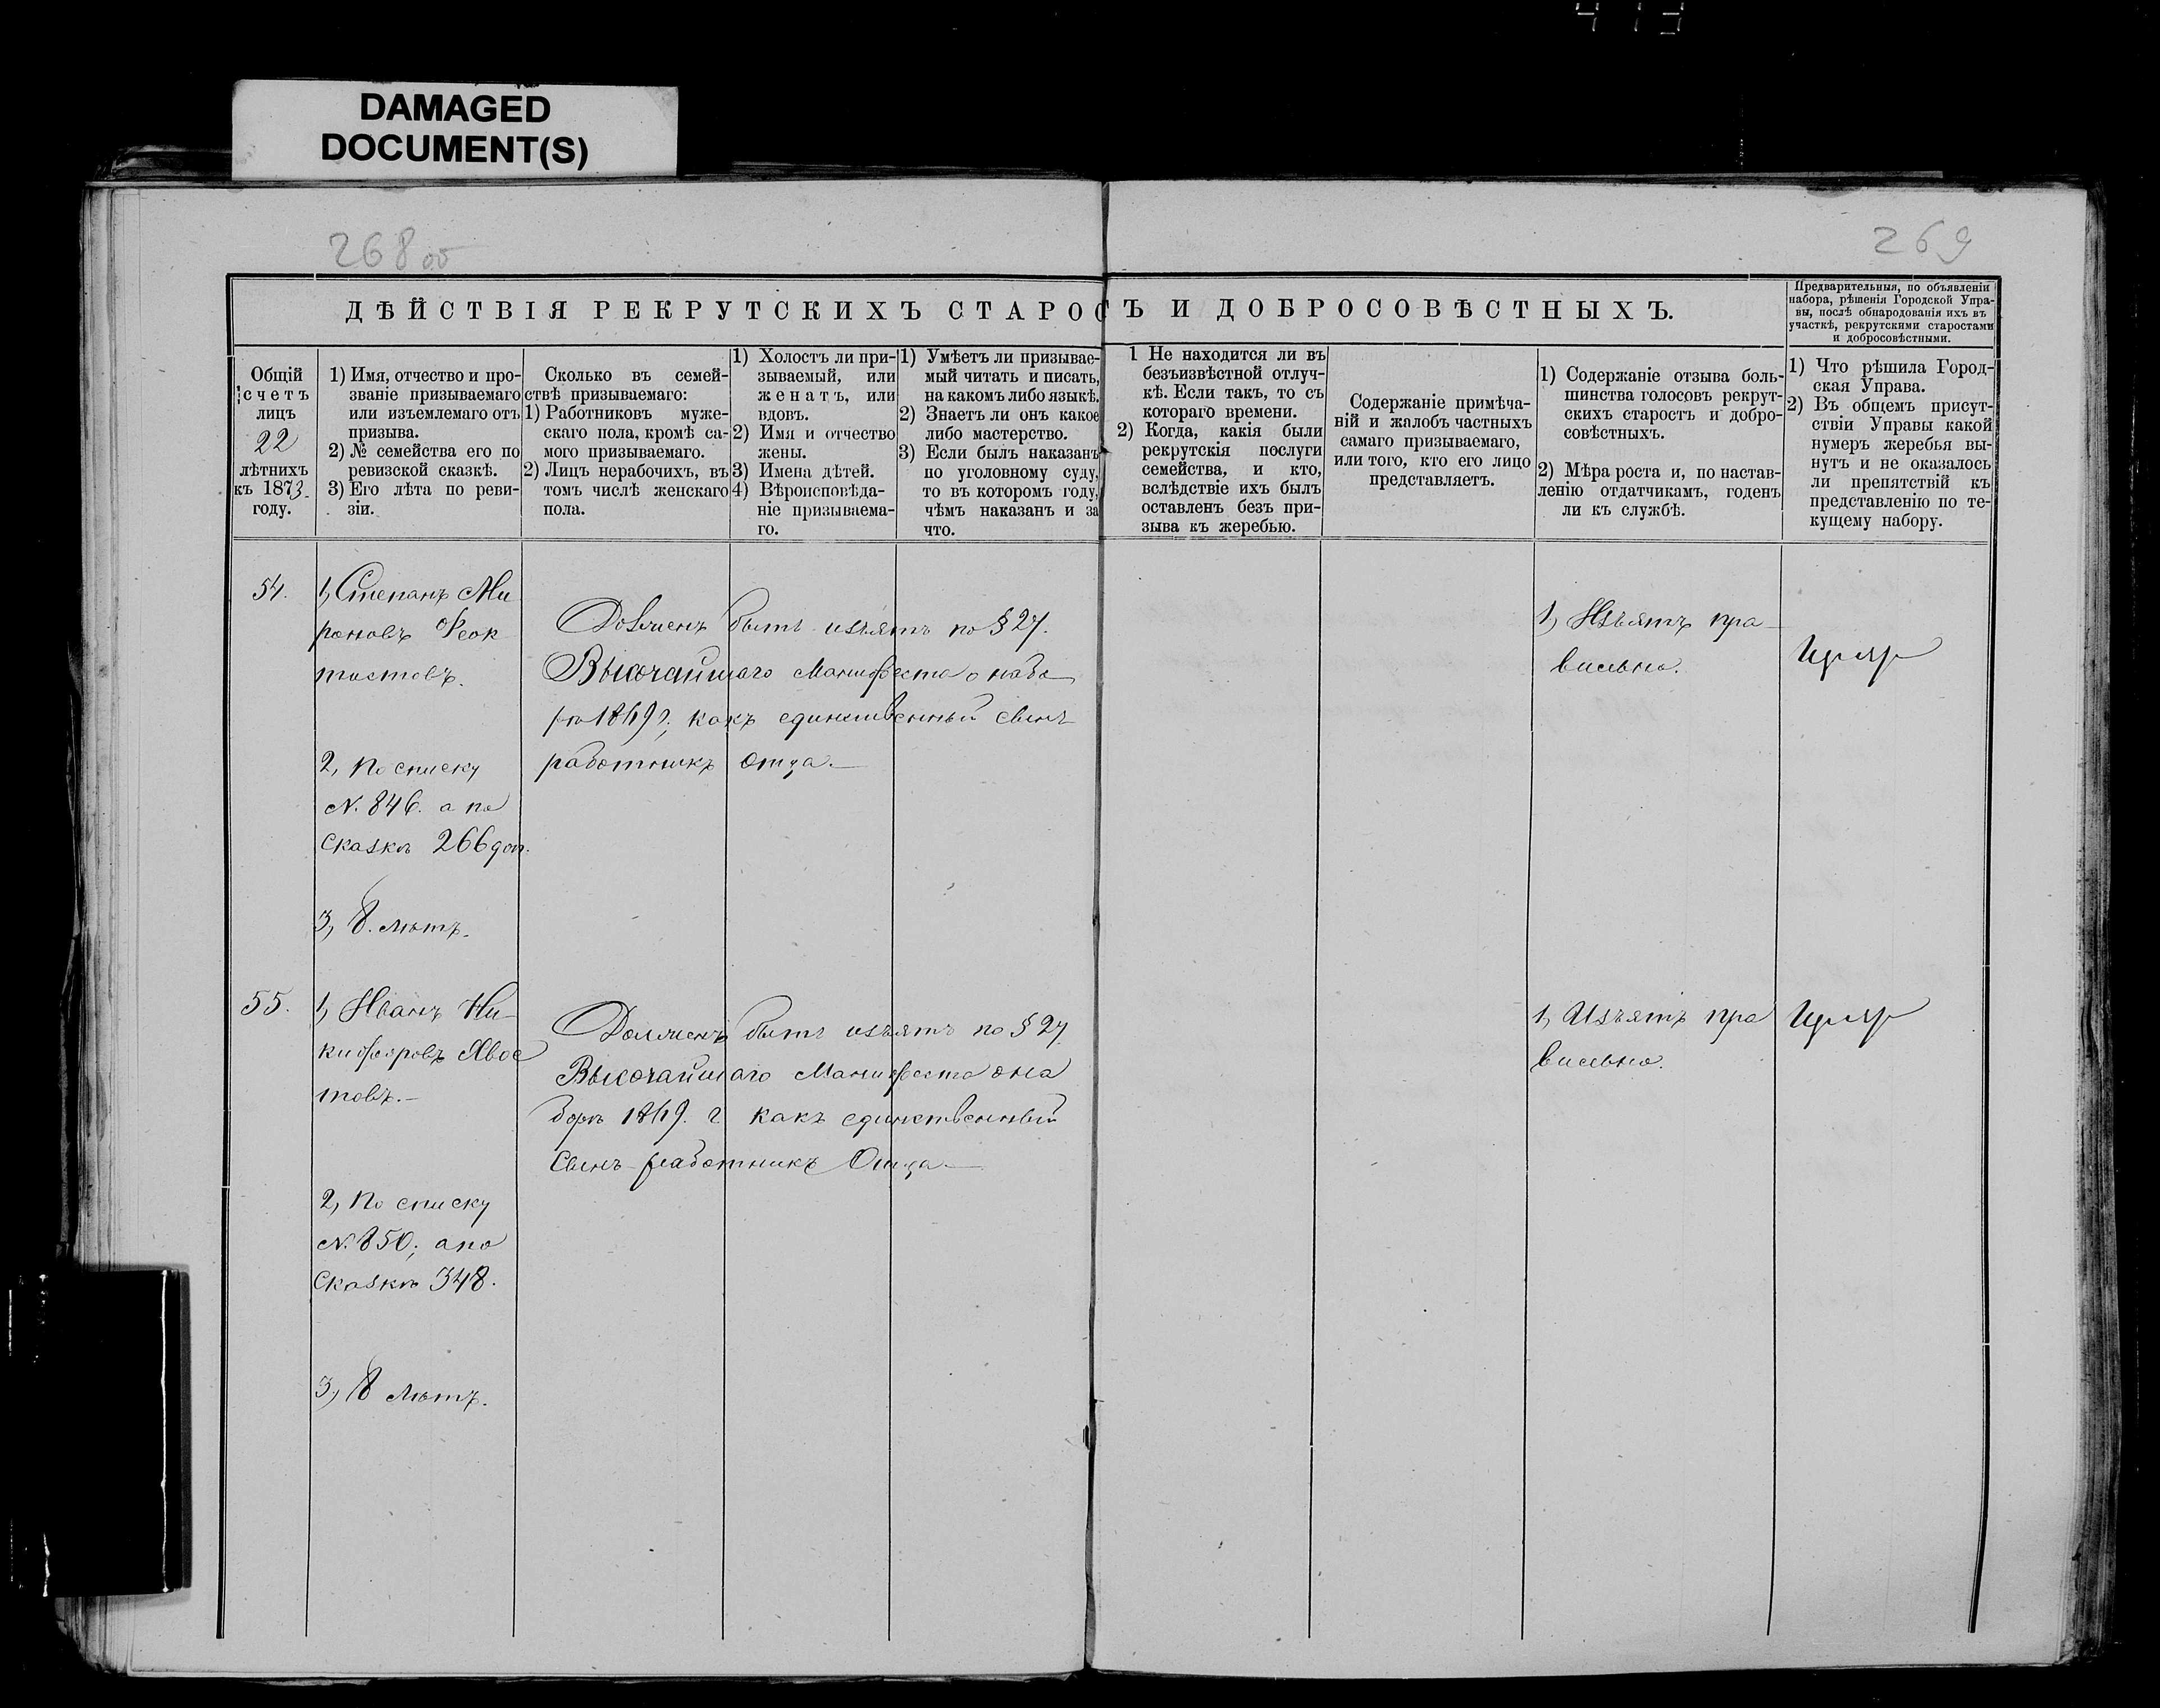 413
DAMAGED
DOCUMENT(S)
268 об
269
ДѢЙСТВІЯ РЕКРУТСКИХЪ СТАРОСТЪ И ДОБРОСОВѢСТНЫХЪ.
Предварительныя, по объявленіи
набора, рѣшенія Городской Упра-
вы, послѣ обнародованія ихъ въ
участкѣ, рекрутскими старостами
и добросовѣстными.
Общій
счетъ
лицъ
22
лѣтнихъ
къ 1873
году.
1) Имя, отчество и про-
званіе призываемаго
или изъемлемаго отъ
призыва.
2) № семейства его по
ревизской сказкѣ.
3) Его лѣта по реви-
зіи.
Сколько въ семей-
ствѣ призываемаго:
1) Работниковъ муже-
скаго пола, кромѣ са-
мого призываемаго.
2) Лицъ нерабочихъ, въ
томъ числѣ женскаго
пола.
1) Холостъ ли при-
зываемый, или
женатъ, или
вдовъ.
2) Имя и отчество
жены.
3) Имена дѣтей.
4) Вѣроисповѣда-
ніе призываема-
го.
1) Умѣетъ ли призывае-
мый читать и писать,
на какомъ либо языкѣ.
2) Знаетъ ли онъ какое
либо мастерство.
3) Если былъ наказанъ
по уголовному суду,
то въ которомъ году,
чѣмъ наказанъ и за
что.
1 Не находится ли въ
безъизвѣстной отлуч-
кѣ. Если такъ, то съ
котораго времени.
2) Когда, какія были
рекрутскія послуги
семейства, и кто,
вслѣдствіе ихъ былъ
оставленъ безъ при-
зыва къ жеребью.
Содержаніе примѣча-
ній и жалобъ частныхъ
самаго призываемаго,
или того, кто его лицо
представляетъ.
1) Содержаніе отзыва боль-
шинства голосовъ рекрут-
скихъ старостъ и добро-
совѣстныхъ.
2) Мѣра роста и, по настав-
ленію отдатчикамъ, годенъ
ли къ службѣ.
1) Что рѣшила Город-
ская Управа.
2) Въ общемъ присут-
ствіи Управы какой
нумеръ жеребья вы-
нутъ и не оказалось
ли препятствій къ
представленію по те-
кущему набору.
54.
1, Степанъ Ми
роновъ Ѳеок
тистовъ.
2, По списку
N. 846. а по
Сказкѣ 266 доп.
3, 8. лѣтъ.
Долженъ быть изъятъ по § 27.
Высочайшаго Манифеста о набо
рѣ 1869 г; какъ единственный сынъ
работникъ Отца.—
1, Изъятъ пра—
вильно.
55.
1, Иванъ Ни—
кифоровъ Хвос
товъ.—
2, По списку
N. 850; а по
Сказкѣ 348.
3, 8 лѣтъ.
Долженъ быть изъятъ по § 27
Высочайшаго Манифеста о на
борѣ 1869. г какъ единственный
Сынъ-работникъ Отца—
1, Изъятъ пра
вильно.